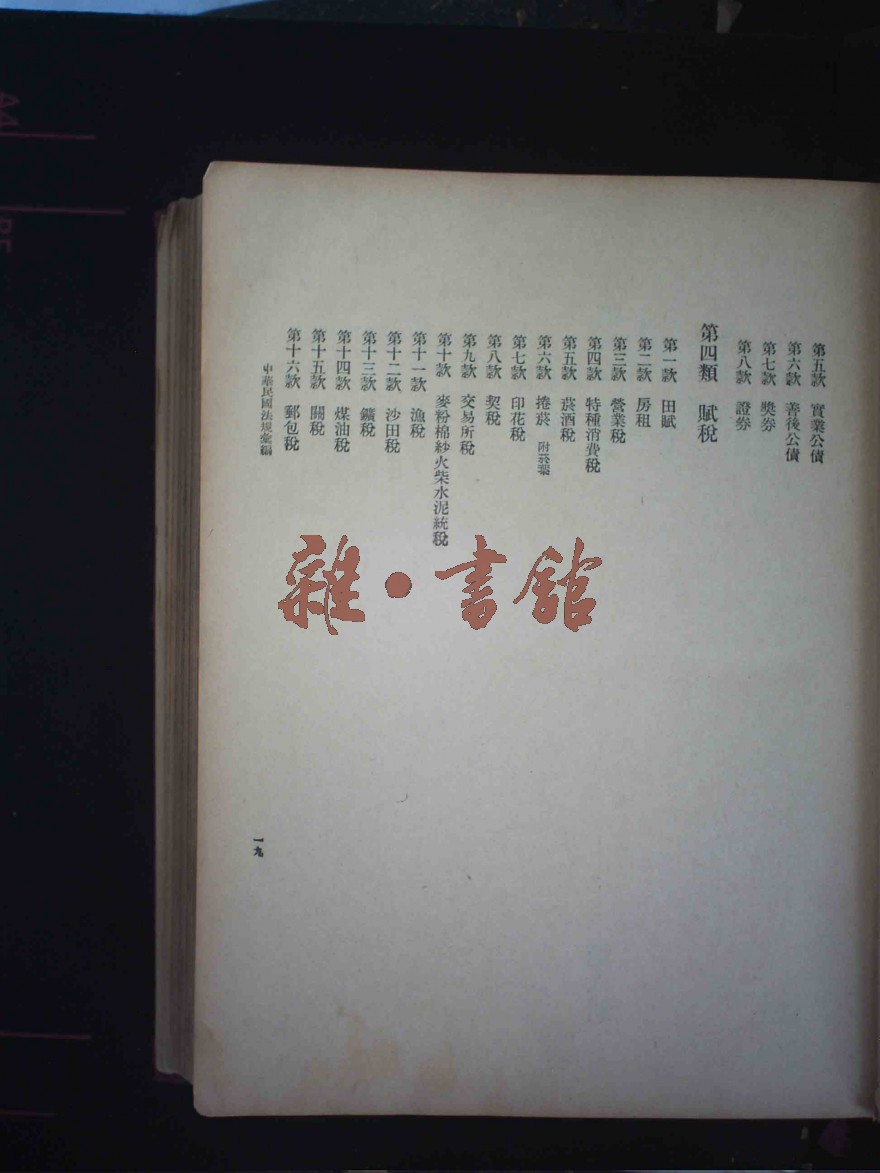 第五款　實業公債
第六款　善後公債
第七款　獎券
第八款　證券
第四類　賦稅
第一款　田賦
第二款　房租
第三款　營業稅
第四款　特種消費稅
第五款　菸酒稅
第六款　捲菸　附菸葉
第七款　印花稅
第八款　契稅
第九款　交易所稅
第十款　麥粉棉紗火柴水泥統稅
第十一款　漁稅
第十二款　沙田稅
第十三款　鑛稅
第十四款　煤油稅
第十五款　關稅
第十六款　郵包稅
中華民國法規彙編
一九
雜·書館